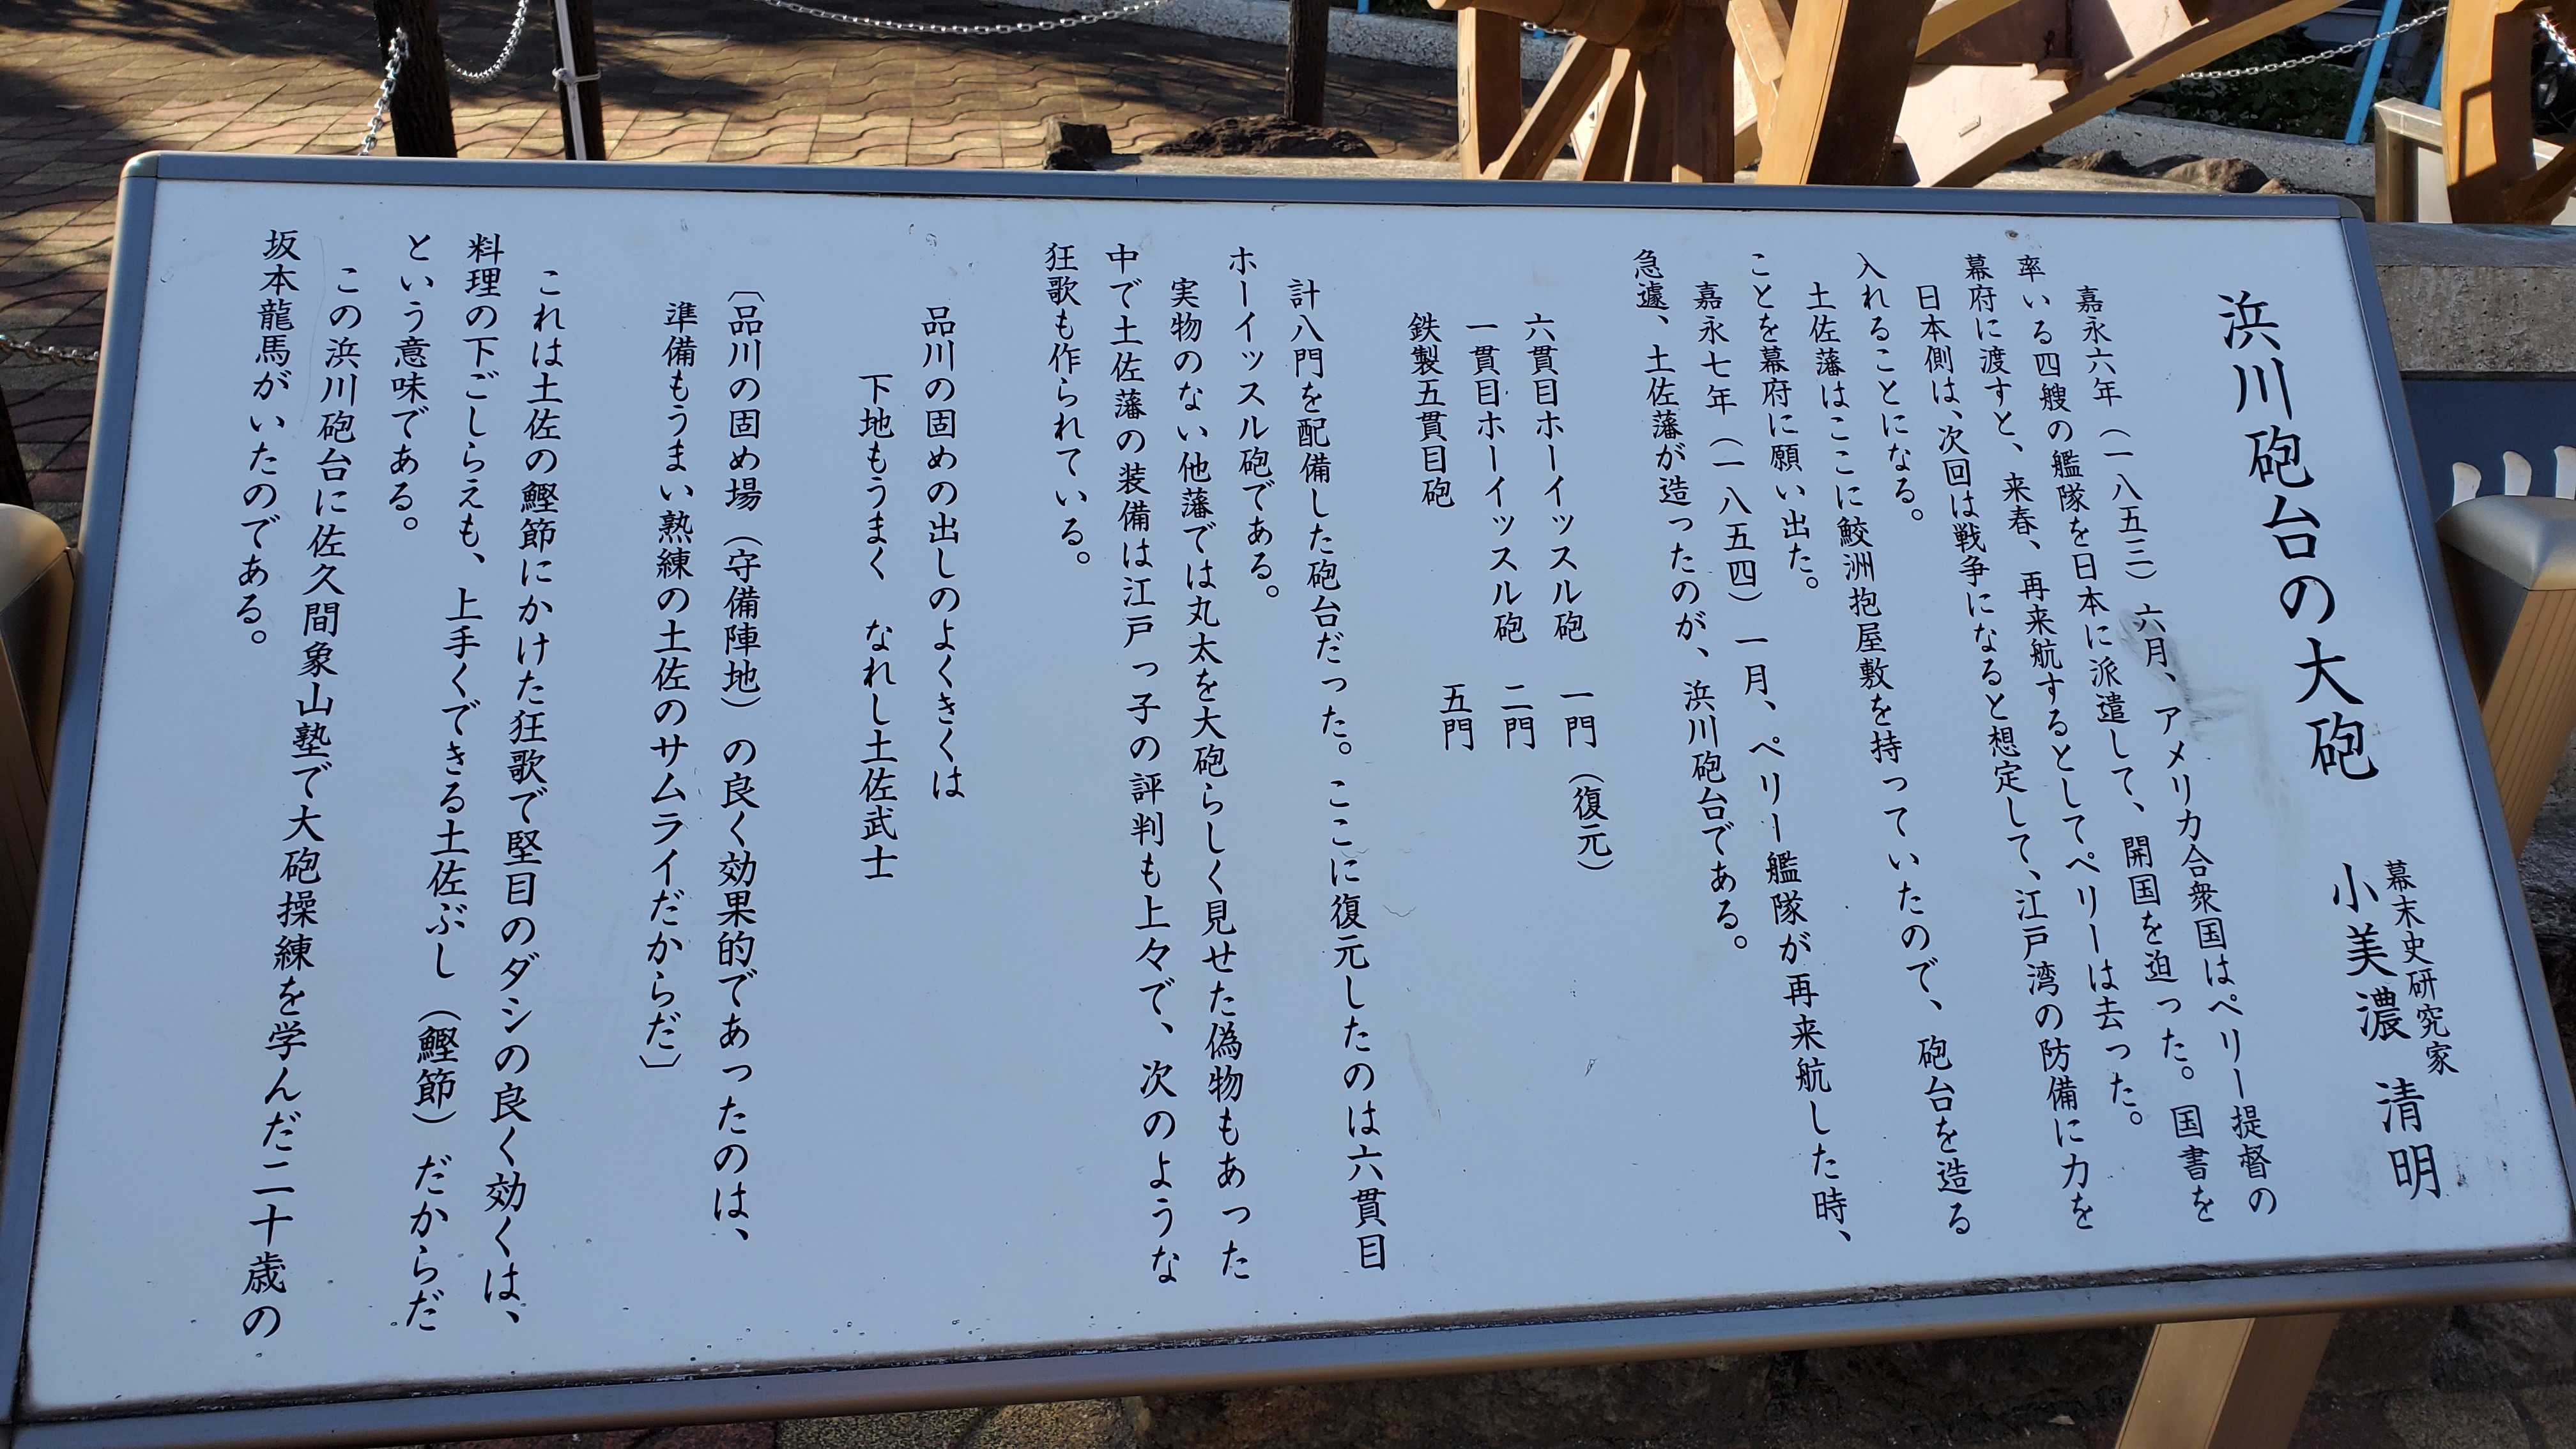 浜川砲台の大砲
幕末史研究家
小美濃 清明
嘉永六年（一八五三）六月、アメリカ合衆国はペリー提督の
率いる四艘の艦隊を日本に派遣して、開国を迫った。国書を
幕府に渡すと、来春、再来航するとしてペリーは去った。
日本側は、次回は戦争になると想定して、江戸湾の防備に力を
入れることになる。
土佐藩はここに鮫洲抱屋敷を持っていたので、砲台を造る
ことを幕府に願い出た。
嘉永七年（一八五四）一月、ペリー艦隊が再来航した時、
急遽、土佐藩が造ったのが、浜川砲台である。
六貫目ホーイッスル砲 一門（復元）
一貫目ホーイッスル砲 二門
鉄製五貫目砲 五門
計八門を配備した砲台だった。ここに復元したのは六貫目
ホーイッスル砲である。
実物のない他藩では丸太を大砲らしく見せた偽物もあった
中で土佐藩の装備は江戸っ子の評判も上々で、次のような
狂歌も作られている。
品川の固めの出しのよくきくは
下地もうまく なれし土佐武士
〔品川の固め場（守備陣地）の良く効果的であったのは、
準備もうまい熟練の土佐のサムライだからだ〕
これは土佐の鰹節にかけた狂歌で堅目のダシの良く効くは、
料理の下ごしらえも、上手くできる土佐ぶし（鰹節）だからだ
という意味である。
この浜川砲台に佐久間象山塾で大砲操練を学んだ二十歳の
坂本龍馬がいたのである。